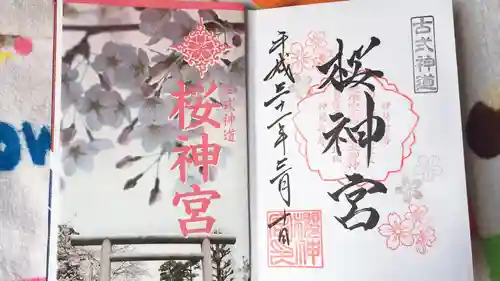 古式神道
桜神宮
古式神道
桜神宮
平成三十一年三月十日